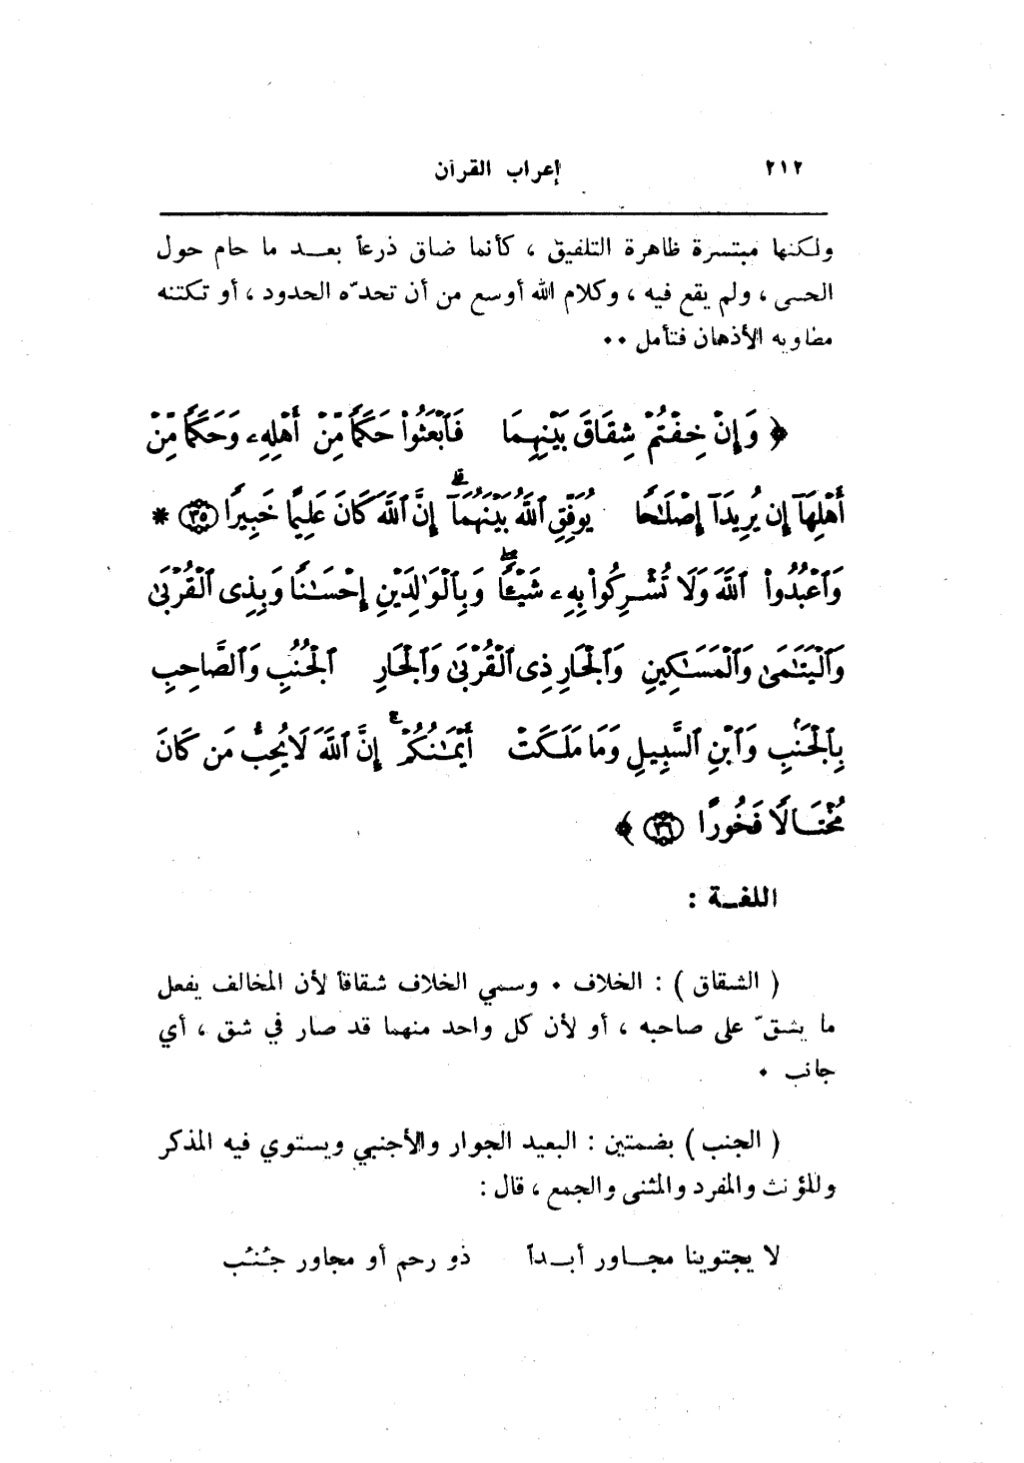 ٢١٢
إعراب القرآن
ولكنها مبتسرة ظاهرة التلفيق ، كأنما ضاق ذرعاً بعـــد ما حام حول
الحمى ، ولم يقع فيه ، وكلام الله أوسع من أن تحدّه الحدود ، أو تكتنه
مطاويه الأذهان فتأمل ٠٠
﴿ وَإِنْ خِفْتُمْ شِقَاقَ بَيْنِهِمَا فَٱبْعَثُوا۟ حَكَمًا مِّنْ أَهْلِهِۦ وَحَكَمًا مِّنْ
أَهْلِهَآ إِن يُرِيدَآ إِصْلَـٰحًا يُوَفِّقِ ٱللَّهُ بَيْنَهُمَآ ۗ إِنَّ ٱللَّهَ كَانَ عَلِيمًا خَبِيرًا ٣٥ *
وَٱعْبُدُوا۟ ٱللَّهَ وَلَا تُشْرِكُوا۟ بِهِۦ شَيْـًٔا ۖ وَبِٱلْوَٰلِدَيْنِ إِحْسَـٰنًا وَبِذِى ٱلْقُرْبَىٰ
وَٱلْيَتَـٰمَىٰ وَٱلْمَسَـٰكِينِ وَٱلْجَارِ ذِى ٱلْقُرْبَىٰ وَٱلْجَارِ ٱلْجُنُبِ وَٱلصَّاحِبِ
بِٱلْجَنۢبِ وَٱبْنِ ٱلسَّبِيلِ وَمَا مَلَكَتْ أَيْمَـٰنُكُمْ ۗ إِنَّ ٱللَّهَ لَا يُحِبُّ مَن كَانَ
مُخْتَالًا فَخُورًا ٣٦ ﴾
اللغـــة :
( الشقاق ) : الخلاف ٠ وسمي الخلاف شقاقاً لأن المخالف يفعل
ما يشقّ على صاحبه ، أو لأن كل واحد منهما قد صار في شق ، أي
جانب ٠
( الجنب ) بضمتين : البعيد الجوار والأجنبي ويستوي فيه المذكر
وللمؤنث والمفرد والمثنى والجمع ، قال :
لا يجتوينا مجـــاور أبـــداً ذو رحم أو مجاور جُنُب